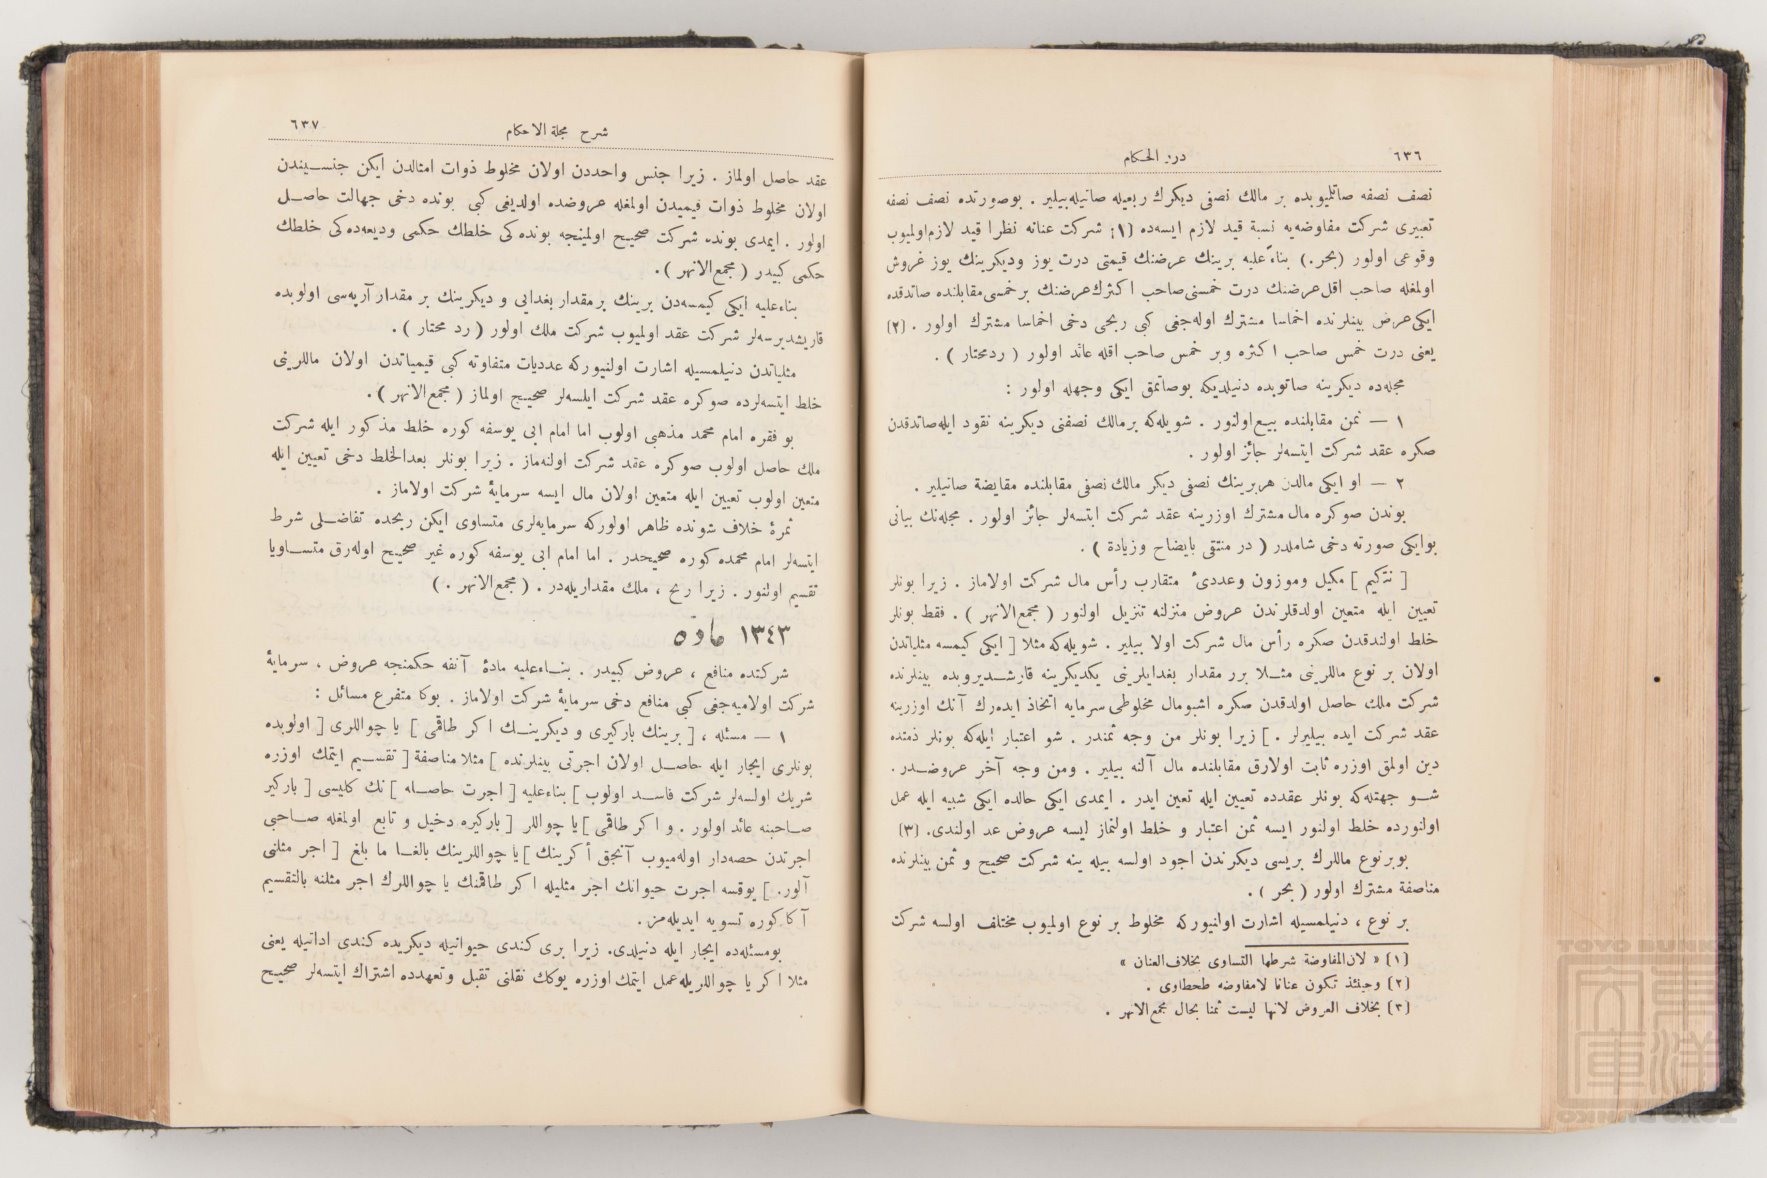 ٦٣٦
درر الحكام
نصف نصفه صاتليوبده بر مالك نصفى ديكرك ربعيله صاتيله‌بيلير . بوصورتده نصف نصفه
تعبيرى شركت مفاوضه‌يه نسبة قيد لازم ايسه‌ده [١] شركت عنانه نظرا قيد لازم‌اولميوب
وقوعى اولور (بحر.) بناءً عليه برينك عرضنك قيمتى درت يوز وديكرينك يوز غروش
اولمغله صاحب اقل‌عرضنك درت خمسنى‌صاحب اكثرك‌عرضنك برخمسى‌مقابلنده صاتدقده
ايكى‌عرض بينلرنده اخماسا مشترك اوله‌جغى كبى ربحى دخى اخماسا مشترك اولور . [٢]
يعنى درت خمس صاحب اكثره وبر خمس صاحب اقله عائد اولور ( ردمحتار ) .
مجله‌ده ديكرينه صاتوبده دنيلديكه بوصاتمق ايكى وجهله اولور :
١ — ثمن مقابلنده بيع‌اولنور . شويله‌كه برمالك نصفنى ديكرينه نقود ايله‌صاتدقدن
صكره عقد شركت ايتسه‌لر جائز اولور .
٢ — او ايكى مالدن هربرينك نصفى ديكر مالك نصفى مقابلنده مقايضة صاتيلير .
بوندن صوكره مال مشترك اوزرينه عقد شركت ايتسه‌لر جائز اولور . مجله‌نك بيانى
بوايكى صورته دخى شاملدر ( در منتقى بايضاح وزيادة ) .
[ نته‌كيم ] مكيل وموزون وعددئ متقارب رأس مال شركت اولاماز . زيرا بونلر
تعيين ايله متعين اولدقلرندن عروض منزلنه تنزيل اولنور ( مجمع‌الانهر ) . فقط بونلر
خلط اولندقدن صكره رأس مال شركت اولا بيلير . شويله‌كه مثلا [ ايكى كيمسه مثلياتدن
اولان بر نوع ماللرينى مثلا برر مقدار بغدايلرينى يكديكرينه قارشديروبده بينلرنده
شركت ملك حاصل اولدقدن صكره اشبومال مخلوطى سرمايه اتخاذ ايده‌رك آنك اوزرينه
عقد شركت ايده بيليرلر . ] زيرا بونلر من وجه ثمندر . شو اعتبار ايله‌كه بونلر ذمتده
دين اولمق اوزره ثابت اولارق مقابلنده مال آلنه بيلير . ومن وجه آخر عروضدر .
شو جهتله‌كه بونلر عقدده تعيين ايله تعين ايدر . ايمدى ايكى حالده ايكى شبيه ايله عمل
اولنورده خلط اولنور ايسه ثمن اعتبار و خلط اولنماز ايسه عروض عد اولندى. [٣]
بوبرنوع ماللرك بريسى ديكرندن اجود اولسه بيله ينه شركت صحيح و ثمن بينلرنده
مناصفة مشترك اولور ( بحر ) .
بر نوع ، دنيلمسيله اشارت اولنيوركه مخلوط بر نوع اولميوب مختلف اولسه شركت
[١] « لان‌المفاوضة شرطها التساوى بخلاف‌العنان »
[٢] وحينئذ تكون عنانا لامفاوضه طحطاوى .
[٣] بخلاف العروض لانها ليست ثمنا بحال مجمع‌الانهر .
شرح مجلة الاحكام
٦٣٧
عقد حاصل اولماز . زيرا جنس واحددن اولان مخلوط ذوات امثالدن ايكن جنسيندن
اولان مخلوط ذوات قيميدن اولمغله عروضده اولديغى كبى بونده دخى جهالت حاصل
اولور . ايمدى بونده شركت صحيح اولمينجه بونده‌كى خلطك حكمى وديعه‌ده‌كى خلطك
حكمى كبيدر ( مجمع‌الانهر ) .
بناءعليه ايكى كيمسه‌دن برينك برمقدار بغدايى و ديكرينك بر مقدار آرپه‌سى اولوبده
قاريشديرسه‌لر شركت عقد اولميوب شركت ملك اولور ( رد محتار ) .
مثلياتدن دنيلمسيله اشارت اولنيوركه عدديات متفاوته كبى قيمياتدن اولان ماللرينى
خلط ايتسه‌لرده صوكره عقد شركت ايلسه‌لر صحيح اولماز ( مجمع‌الانهر ) .
بو فقره امام محمد مذهبى اولوب اما امام ابى يوسفه كوره خلط مذكور ايله شركت
ملك حاصل اولوب صوكره عقد شركت اولنه‌ماز . زيرا بونلر بعدالخلط دخى تعيين ايله
متعين اولوب تعيين ايله متعين اولان مال ايسه سرمايۀ شركت اولاماز .
ثمرۀ خلاف شونده ظاهر اولوركه سرمايه‌لرى متساوى ايكن ربحده تفاضلى شرط
ايتسه‌لر امام محمده كوره صحيحدر . اما امام ابى يوسفه كوره غير صحيح اوله‌رق متساويا
تقسيم اولنور . زيرا ربح ، ملك مقداريله‌در . ( مجمع‌الانهر . )
١٣٤٣ ماده
شركتده منافع ، عروض كبيدر . بناءعليه مادۀ آنفه حكمنجه عروض ، سرمايۀ
شركت اولاميه‌جغى كبى منافع دخى سرمايۀ شركت اولاماز . بوكا متفرع مسائل :
١ — مسئله ، [ برينك باركيرى و ديكرينك اكر طاقمى ] يا چواللرى [ اولوبده
بونلرى ايجار ايله حاصل اولان اجرتى بينلرنده ] مثلا مناصفة [ تقسيم ايتمك اوزره
شريك اولسه‌لر شركت فاسد اولوب ] بناءعليه [ اجرت حاصله ] نك كليسى [ باركير
صاحبنه عائد اولور . و اكر طاقمى ] يا چواللر [ باركيره دخيل و تابع اولمغله صاحبى
اجرتدن حصه‌دار اوله‌ميوب آنجق أكرينك ] يا چواللرينك بالغا ما بلغ [ اجر مثلنى
آلور. ] يوقسه اجرت حيوانك اجر مثليله اكر طاقمنك يا چواللرك اجر مثلنه بالتقسيم
آكا كوره تسويه ايديله‌مز .
بومسئله‌ده ايجار ايله دنيلدى. زيرا برى كندى حيوانيله ديكريده كندى اداتيله يعنى
مثلا اكر يا چواللريله‌عمل ايتمك اوزره يوكك نقلنى تقبل وتعهدده اشتراك ايتسه‌لر صحيح